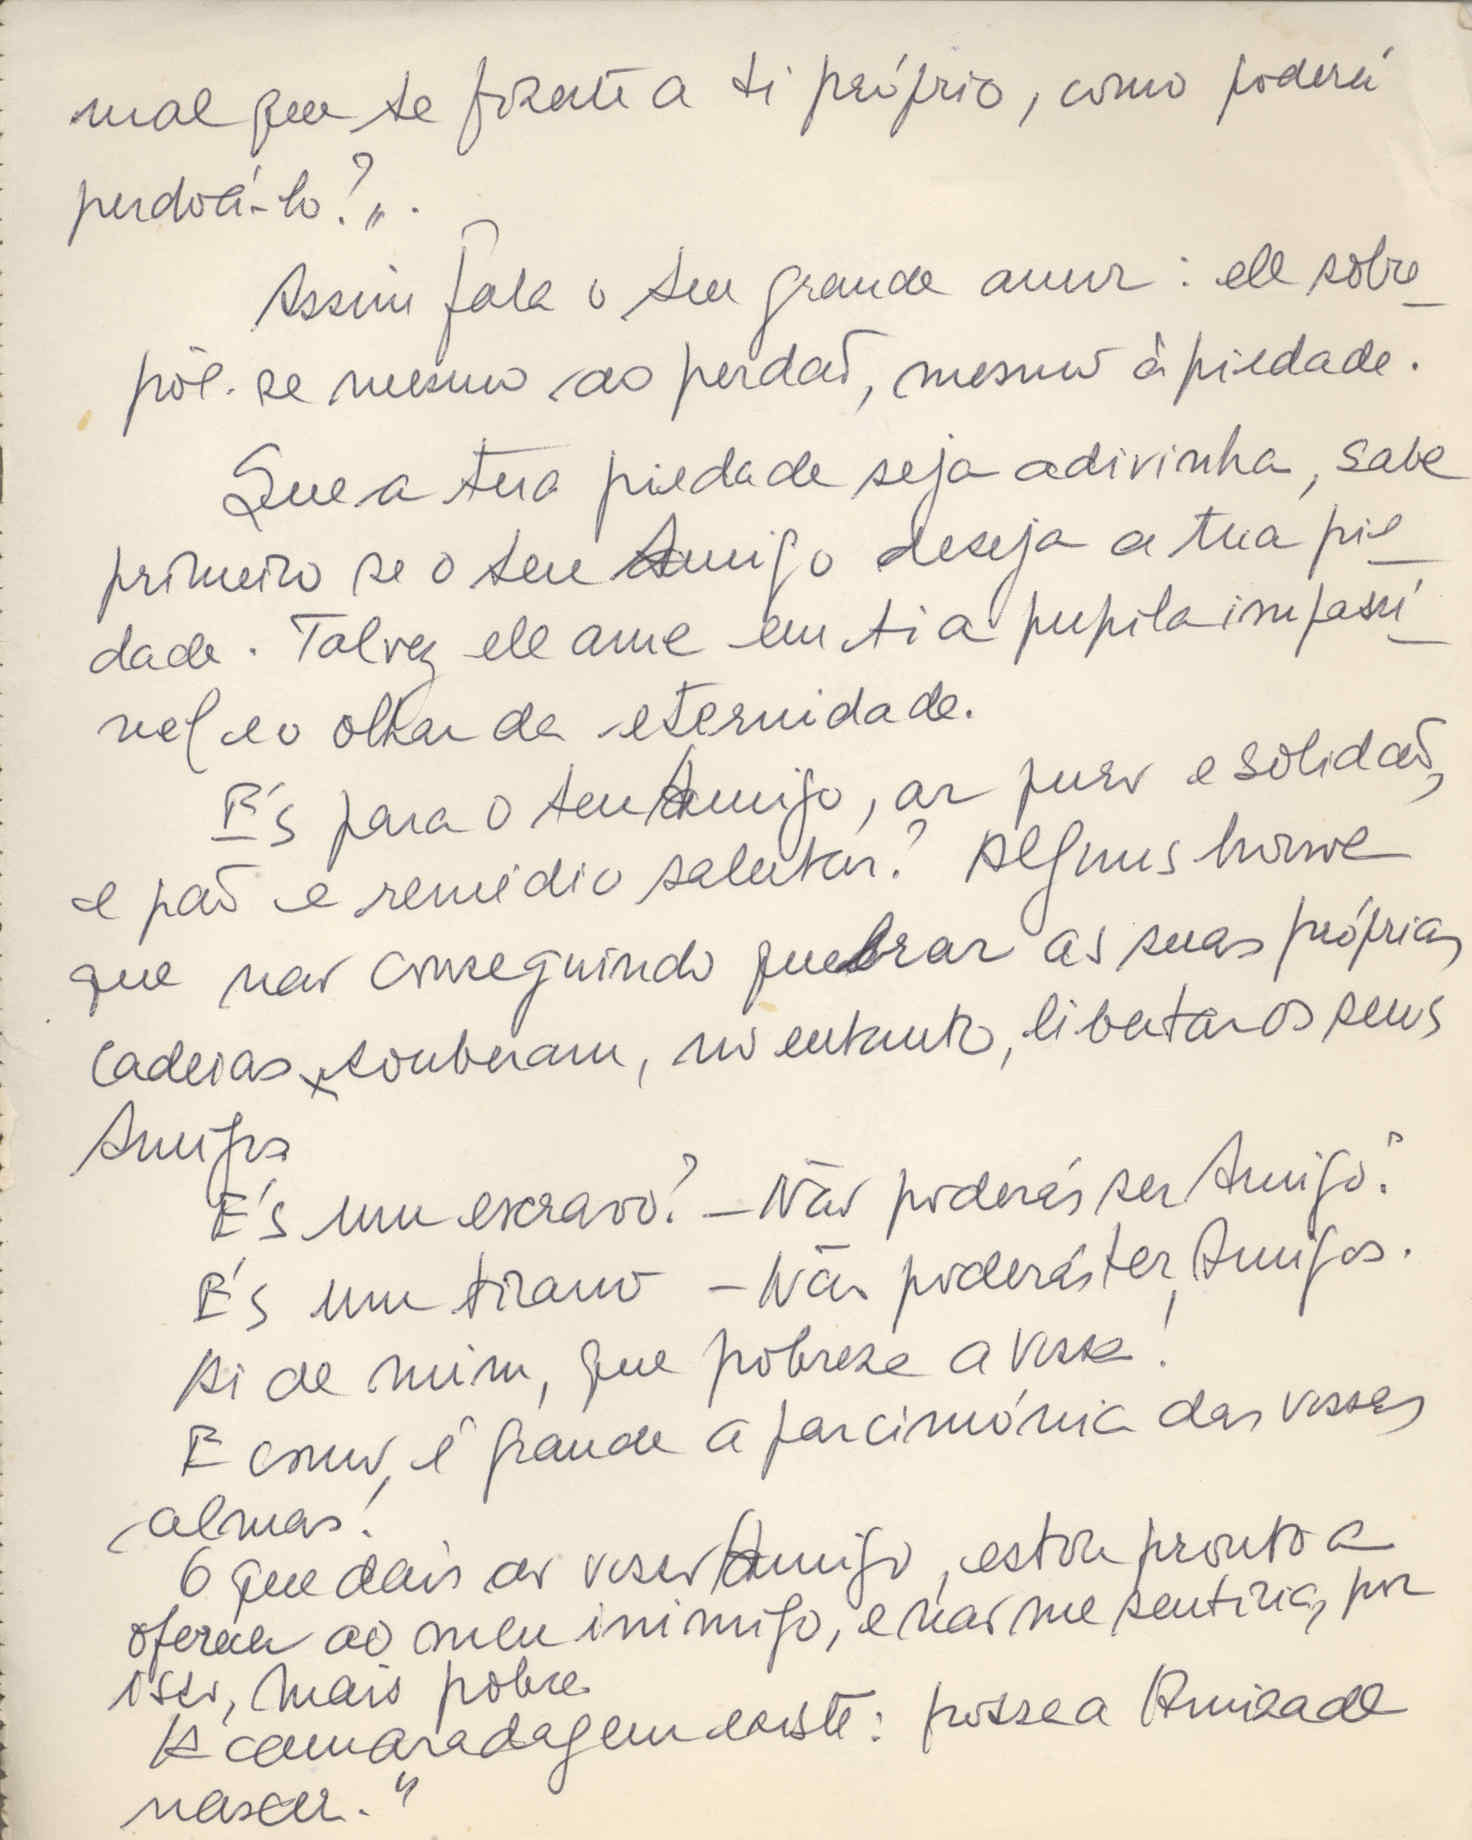 mal que te fizeste a ti próprio, como poderei
perdoá-lo?".
Assim fala o teu grande amor: ele sobre-
põe-se mesmo ao perdão, mesmo à piedade.
Que a tua piedade seja adivinha, sabe
primeiro se o teu Amigo deseja a tua pie-
dade. Talvez ele ame em ti a pupila impassí-
vel e o olhar da eternidade.
És para o teu Amigo, ar puro e solidão,
e pão e remédio salutar? Alguns houve
que não conseguindo quebrar as suas próprias
cadeias souberam, no entanto, libertar os seus
Amigos
És um escravo? - Não poderás ser Amigo?
És um tirano - Não poderás ter Amigos.
Ai de mim, que pobreza a vossa!
E como é grande a parcimónia das vossas
almas!
O que dais ao vosso Amigo, estou pronto a
oferecer ao meu inimigo, e não me sentiria, por
isso, mais pobre.
A camaradagem existe: possa a Amizade
nascer."